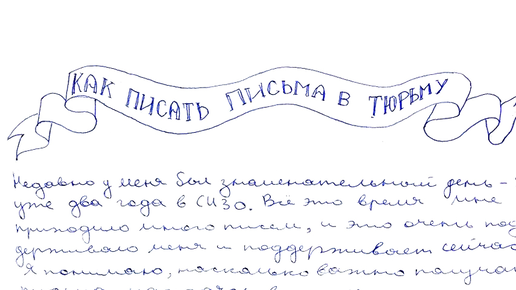 КАК ПИСАТЬ ПИСЬМА В ТЮРЬМУ
Недавно у меня был знаменательный день –
уже два года в СИЗО. Всё это время мне
приходило много писем, и это очень под
держивало меня и поддерживает сейчас
Я понимаю, насколько важно получа